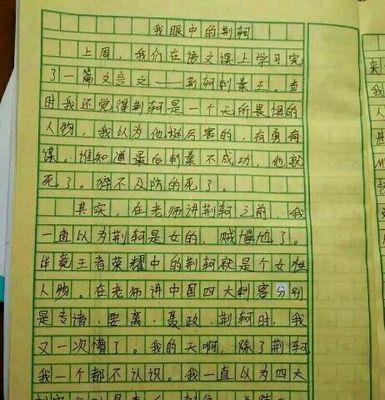 我眼中的荆轲
上周，我们在语文课上学习完
了一篇文言文——荆轲刺秦王。当
时我还觉得荆轲是一个无所畏惧的
人物，我认为他挺厉害的，有勇有
谋。谁知道最后刺秦不成功，他就
死了。猝不及防的死了。
其实，在老师讲荆轲之前，我
一直以为荆轲是女的，贼尴尬了。
毕竟王者荣耀中的荆轲就是个女性
人物。在老师讲中国四大刺客分别
是专诸、要离、聂政、荆轲时，我
又一次懵了。我的天啊，除了荆轲
我一个都不认识。我一直以为四大